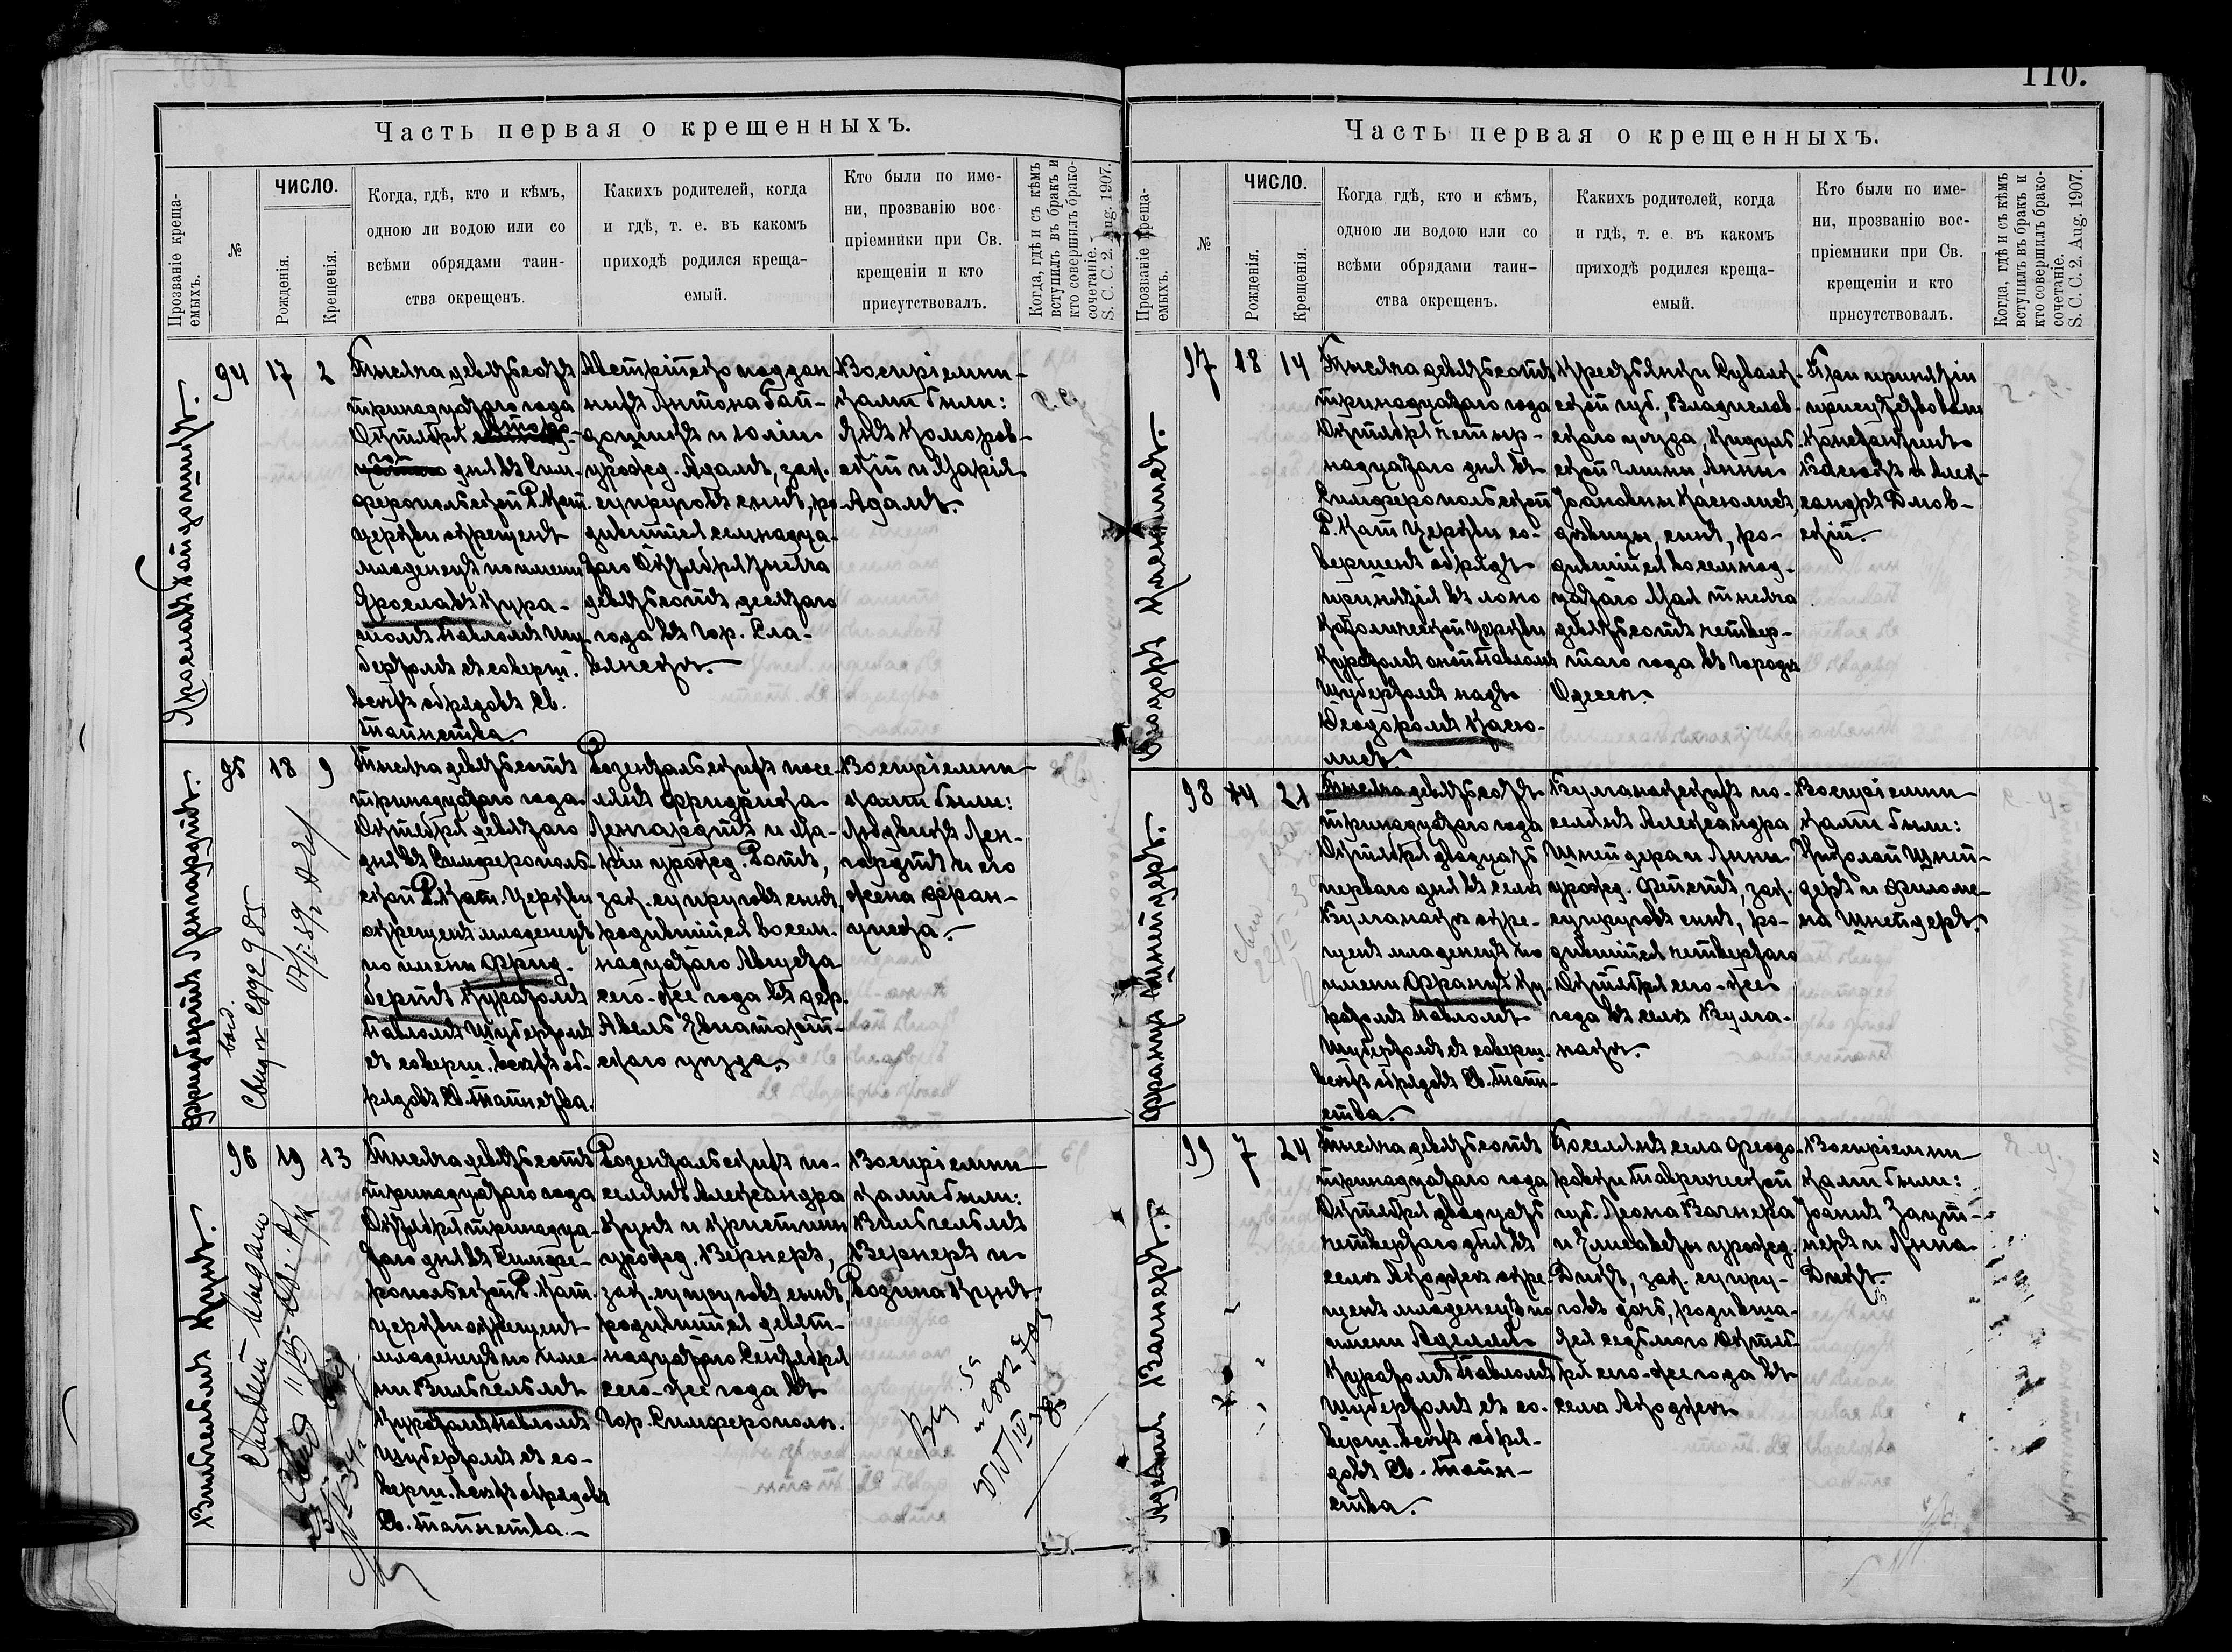 110.
Часть первая о крещенныхъ.
Прозваніе креща-
емыхъ.
№
ЧИСЛО.
Рожденія.
Крещенія.
Когда, гдѣ, кто и кѣмъ,
одною ли водою или со
всѣми обрядами таин-
ства окрещенъ.
Какихъ родителей, когда
и гдѣ, т. е. въ какомъ
приходѣ родился креща-
емый.
Кто были по име-
ни, прозванію вос
пріемники при Св.
крещеніи и кто
присутствовалъ.
Когда, гдѣ и съ кѣмъ
вступилъ въ бракъ и
кто совершилъ брако-
сочетаніе.
S. C. C. 2. Aug. 1907.
94
17
2
Тысяча девятьсотъ
тринадцатаго года
Октября второго
дня въ Сим-
феропольской Р. Кат.
церкви окрещенъ
младенецъ по имени
Ярославъ Кура-
томъ Павломъ Шу-
бертомъ съ соверш.
всѣхъ обрядовъ Св.
Таинства
Австрійско поддан
ныхъ Антона Гай-
и Юліи
урожд. Адамъ, зак.
супруговъ сынъ, ро
дившійся семнадца-
таго Октября тысяча
девятьсотъ десятаго
года въ гор. Сла-
вянскѣ.
Воспріемни-
ками были:
Янъ Комаров-
скій и Марія
Адамъ.
Фридбертъ Ленгардтъ.
95
18
9
Тысяча девятьсотъ
тринадцатаго года
Октября девятаго
дня въ Симферополь-
ской Р. Кат. Церкви
окрещенъ младенецъ
по имени Фрид-
бертъ Куратомъ
Павломъ Шубертомъ
съ соверш. всѣхъ об-
рядовъ Св. Таинства.
Розентальскихъ посе-
лянъ Фридриха
Ленгардтъ и Ма-
ріи урожд. Ротъ,
зак. супруговъ сынъ,
родившійся восем-
надцатаго Августа
сего-же года въ дер.
Авель Евпаторій-
скаго уѣзда.
Воспріемни-
ками были:
Людвикъ Лен-
гардтъ и его
жена Фран-
циска.
Вильгельмъ Кунъ.
96
19
13
Тысяча девятьсотъ
тринадцатаго года
Октября тринадца-
таго дня въ Симфе-
ропольской Р. Кат.
церкви окрещенъ
младенецъ по име-
ни Вильгельмъ
Куратомъ Павломъ
Шубертомъ съ со-
верш. всѣхъ обрядовъ
Св. Таинства.
Розентальскихъ по-
селянъ Александра
Кунъ и Кристины
урожд. Вернеръ,
зак. супруговъ сынъ,
родившійся девят-
надцатаго Сентября
сего-же года въ
гор. Симферополѣ.
Воспріемни-
ками были:
Вильгельмъ
Вернеръ и
Розина Кунъ.
Часть первая о крещенныхъ.
Прозваніе креща-
емыхъ.
№
ЧИСЛО.
Рожденія.
Крещенія.
Когда гдѣ, кто и кѣмъ,
одною ли водою или со
всѣми обрядами таин-
ства окрещенъ.
Какихъ родителей, когда
и гдѣ, т. е. въ какомъ
приходѣ родился креща-
емый.
Кто были по име-
ни, прозванію вос-
пріемники при Св.
крещеніи и кто
присутствовалъ.
Когда, гдѣ и съ кѣмъ
вступилъ въ бракъ и
кто совершилъ брако-
сочетаніе.
S. C. C. 2. Aug. 1907.
97
18
14
Тысяча девятьсотъ
тринадцатаго года
Октября четыр-
надцатаго дня въ
Симферопольской
Р. Кат Церкви со-
вершенъ обрядъ
принятія въ лоно
Католической Церкви
Куратомъ оной Павломъ
Шубертомъ надъ
Ѳеодоромъ
Крестьянки Сувалк-
ской губ. Владислав-
скаго уѣзда,
ской гмины, Анны
Іоановны
дѣвицы, сынъ, ро-
дившійся восемнад-
цатаго Мая тысяча
девятьсотъ четвер-
таго года въ городѣ
Одессѣ.
При принятіи
присутствовали
и Алек-
сандръ
Францъ Шнейдеръ.
98
21
девятьсотъ
тринадцатаго года
Октября двадцать
перваго дня въ селѣ
Булганакъ окре-
щенъ младенецъ по
имени Францъ Ку-
ратомъ Павломъ
Шубертомъ съ соверш.
всѣхъ обрядовъ Св. Таин-
ства.
Булганакскихъ по-
селянъ Александра
Шнейдера и Анны
урожд. зак.
супруговъ сынъ, ро-
дившійся четвертаго
Октября сего-же
года въ селѣ Булга-
накѣ.
Воспріемни
ками были:
Николай Шней-
деръ и Филоме-
на Шнейдеръ.
Аделля Вагнеръ.
99
7
24
Тысяча девятьсотъ
тринадцатаго года
Октября двадцать
четвертаго дня въ
селѣ окре-
щенъ младенецъ по
имени Аделля
Куратомъ Павломъ
Шубертомъ съ со-
верш. всѣхъ обря-
довъ Св. Таин-
ства.
Поселянъ села
Таврической
губ. Леона Вагнера
и Елисаветы урожд.
зак. супру-
говъ дочь, родивша-
яся седьмого Октяб-
ря сего-же года въ
селѣ
Воспріемни
ками были:
Іоаннъ
и Анна